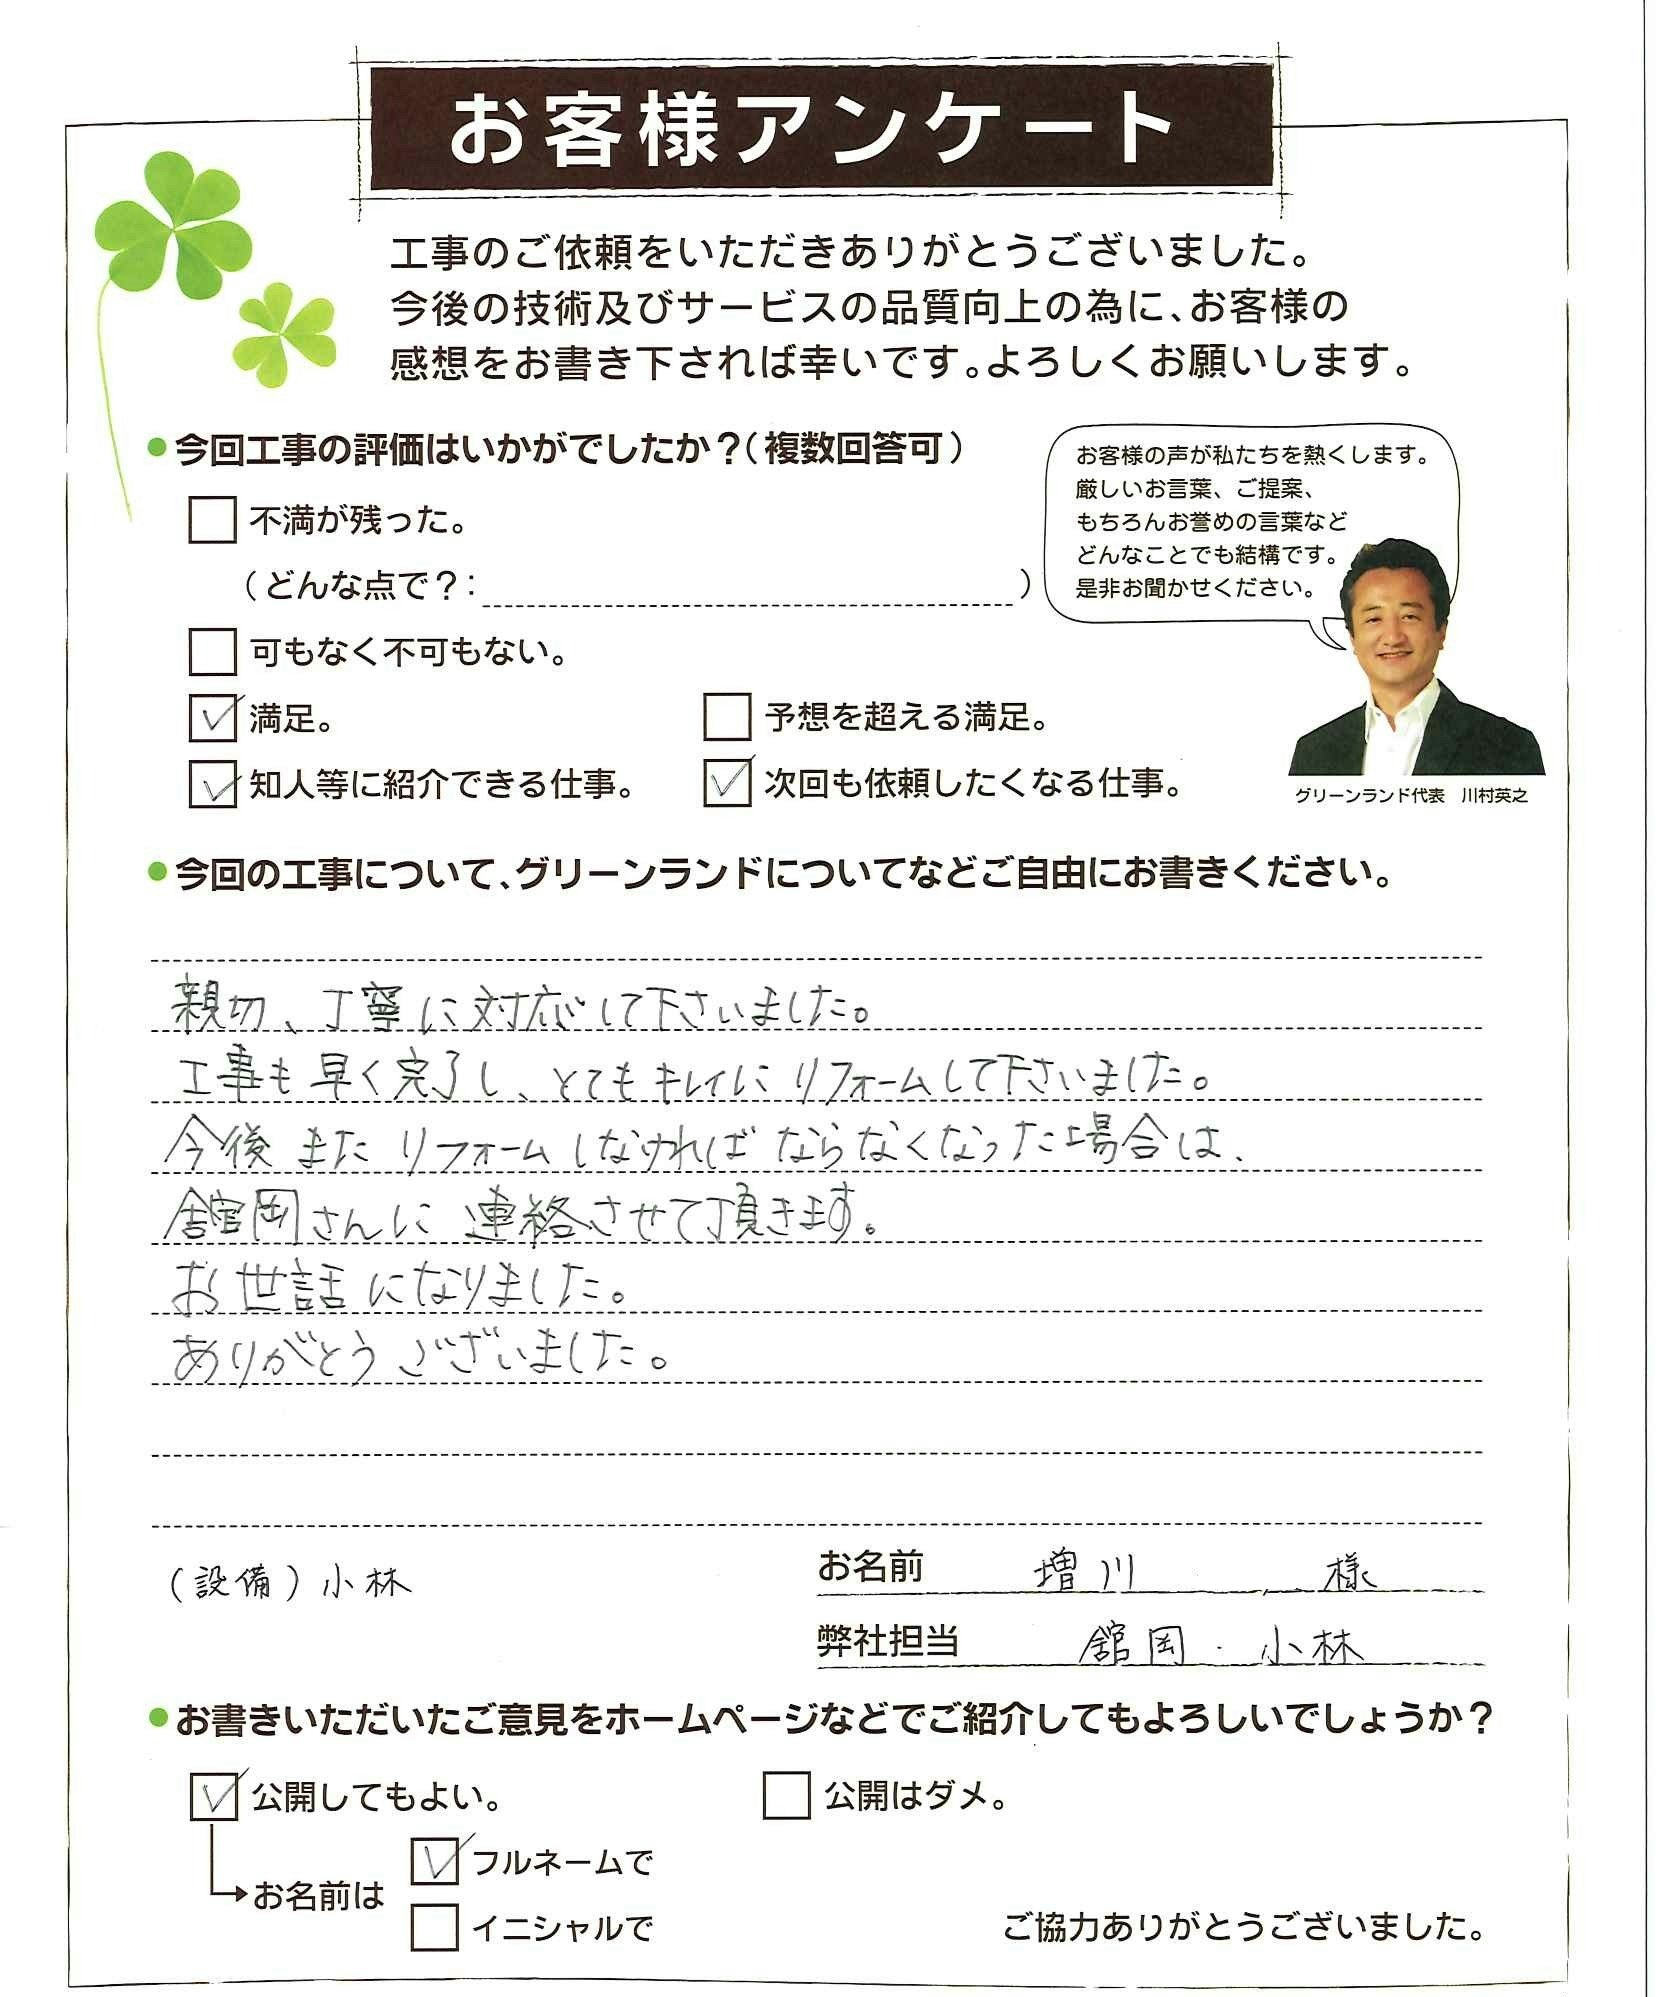 お客様アンケート
工事のご依頼をいただきありがとうございました。
今後の技術及びサービスの品質向上の為に、お客様の
感想をお書き下されば幸いです。よろしくお願いします。
●今回工事の評価はいかがでしたか？（複数回答可）
お客様の声が私たちを熱くします。
厳しいお言葉、ご提案、
もちろんお誉めの言葉など
どんなことでも結構です。
是非お聞かせください。
グリーンランド代表　川村英之
不満が残った。
（どんな点で？：　）
可もなく不可もない。
満足。　予想を超える満足。
知人等に紹介できる仕事。　次回も依頼したくなる仕事。
●今回の工事について、グリーンランドについてなどご自由にお書きください。
親切、丁寧に対応して下さいました。
工事も早く完了し、とてもキレイにリフォームして下さいました。
今後またリフォームしなければならなくなった場合は、
舘岡さんに連絡させて頂きます。
お世話になりました。
ありがとうございました。
（設備）小林
お名前　増川　様
弊社担当　舘岡・小林
●お書きいただいたご意見をホームページなどでご紹介してもよろしいでしょうか？
公開してもよい。　公開はダメ。
お名前は　フルネームで
イニシャルで
ご協力ありがとうございました。